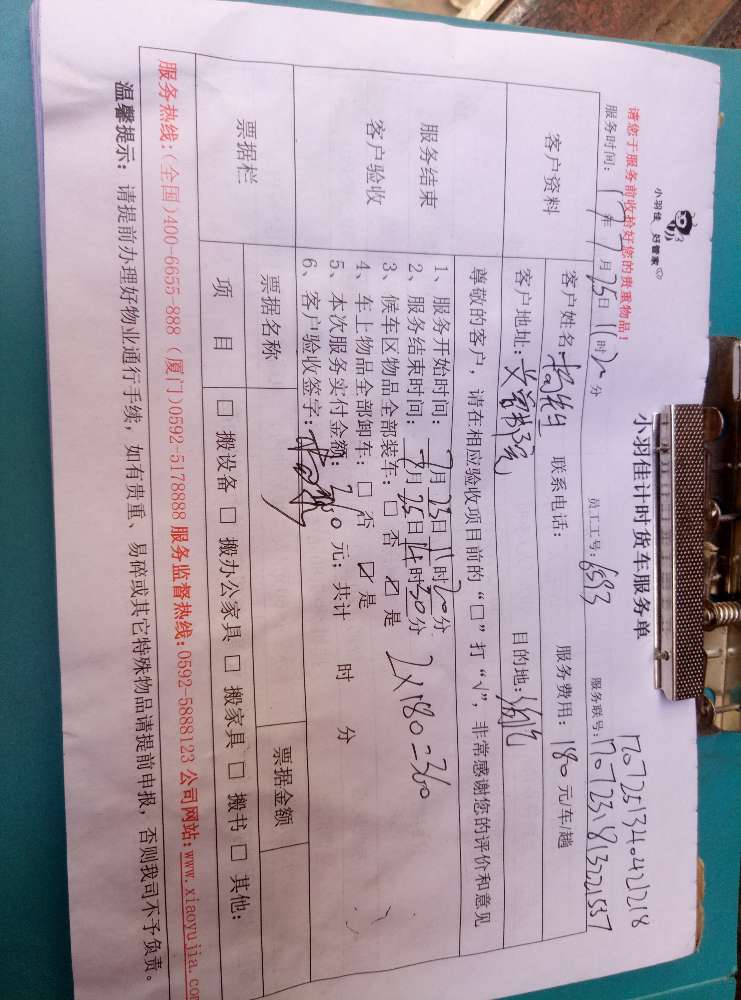 小羽佳 好管家
请您于服务前收拾好您的贵重物品！
小羽佳计时货车服务单
1707251340421218
服务时间：17年7月25日11时20分 员工工号：6593 服务联号：1707231813221537
客户资料
客户姓名：杨先生 联系电话： 服务费用：180元/车/趟
客户地址： 目的地：
服务结束
客户验收
尊敬的客户，请在相应验收项目前的“□”打“√”，非常感谢您的评价和意见
1、服务开始时间：7月25日11时20分
2、服务结束时间：7月25日14时30分
3、候车区物品全部装车：□ 否 ☑ 是
4、车上物品全部卸车：□ 否 ☑ 是
2×180=360
5、本次服务实付金额：360元；共计 时 分
6、客户验收签字：
票据栏
票据名称 票据金额
项 目 □ 搬设备 □ 搬办公家具 □ 搬家具 □ 搬书 □ 其他：
服务热线：(全国)400-6655-888 (厦门)0592-5178888 服务监督热线：0592-5888123 公司网站：www.xiaoyujia.com
温馨提示：请提前办理好物业通行手续，如有贵重、易碎或其它特殊物品请提前申报，否则我司不予负责。